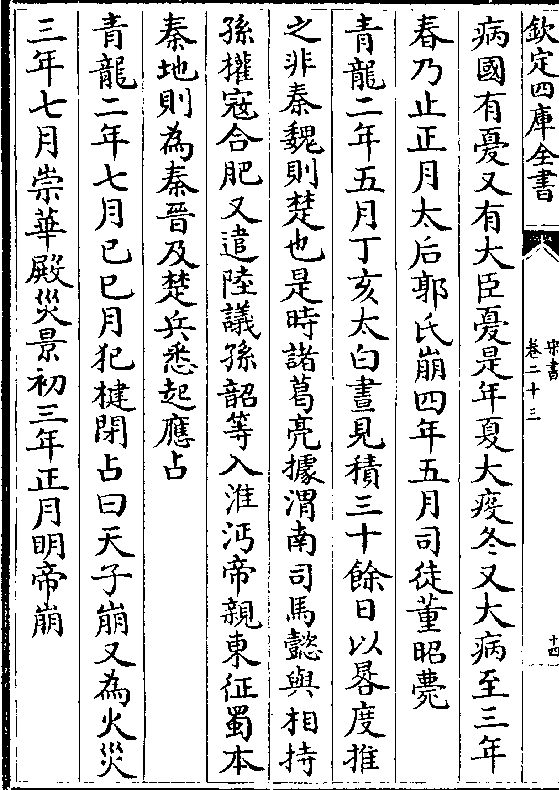 欽定四庫全書
宋書
卷二十三
十四
病國有憂又有大臣憂是年夏大疫冬又大病至三年
春乃止正月太后郭氏崩四年五月司徒董昭薨
青龍二年五月丁亥太白晝見積三十餘日以晷度推
之非秦魏則楚也是時諸葛亮據渭南司馬懿與相持
孫權寇合肥又遣陸議孫韶等入淮沔帝親東征蜀本
秦地則為秦晉及楚兵悉起應占
青龍二年七月己巳月犯楗閉占曰天子崩又為火災
三年七月崇華殿災景初三年正月明帝崩